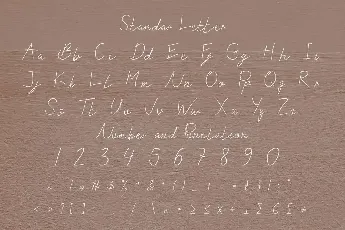 Standar Letter
Aa Bb Cc Dd Ee Ff Gg Hh Ii
Jj Kk Ll Mm Nn Oo Pp Qq Rr
Ss Tt Uu Vv Ww Xx Yy Zz
Number and Puntuation
1 2 3 4 5 6 7 8 9 0